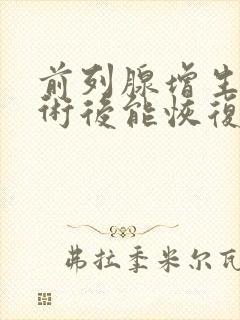 前列腺增生
術後能恢復
弗拉季米尔瓦